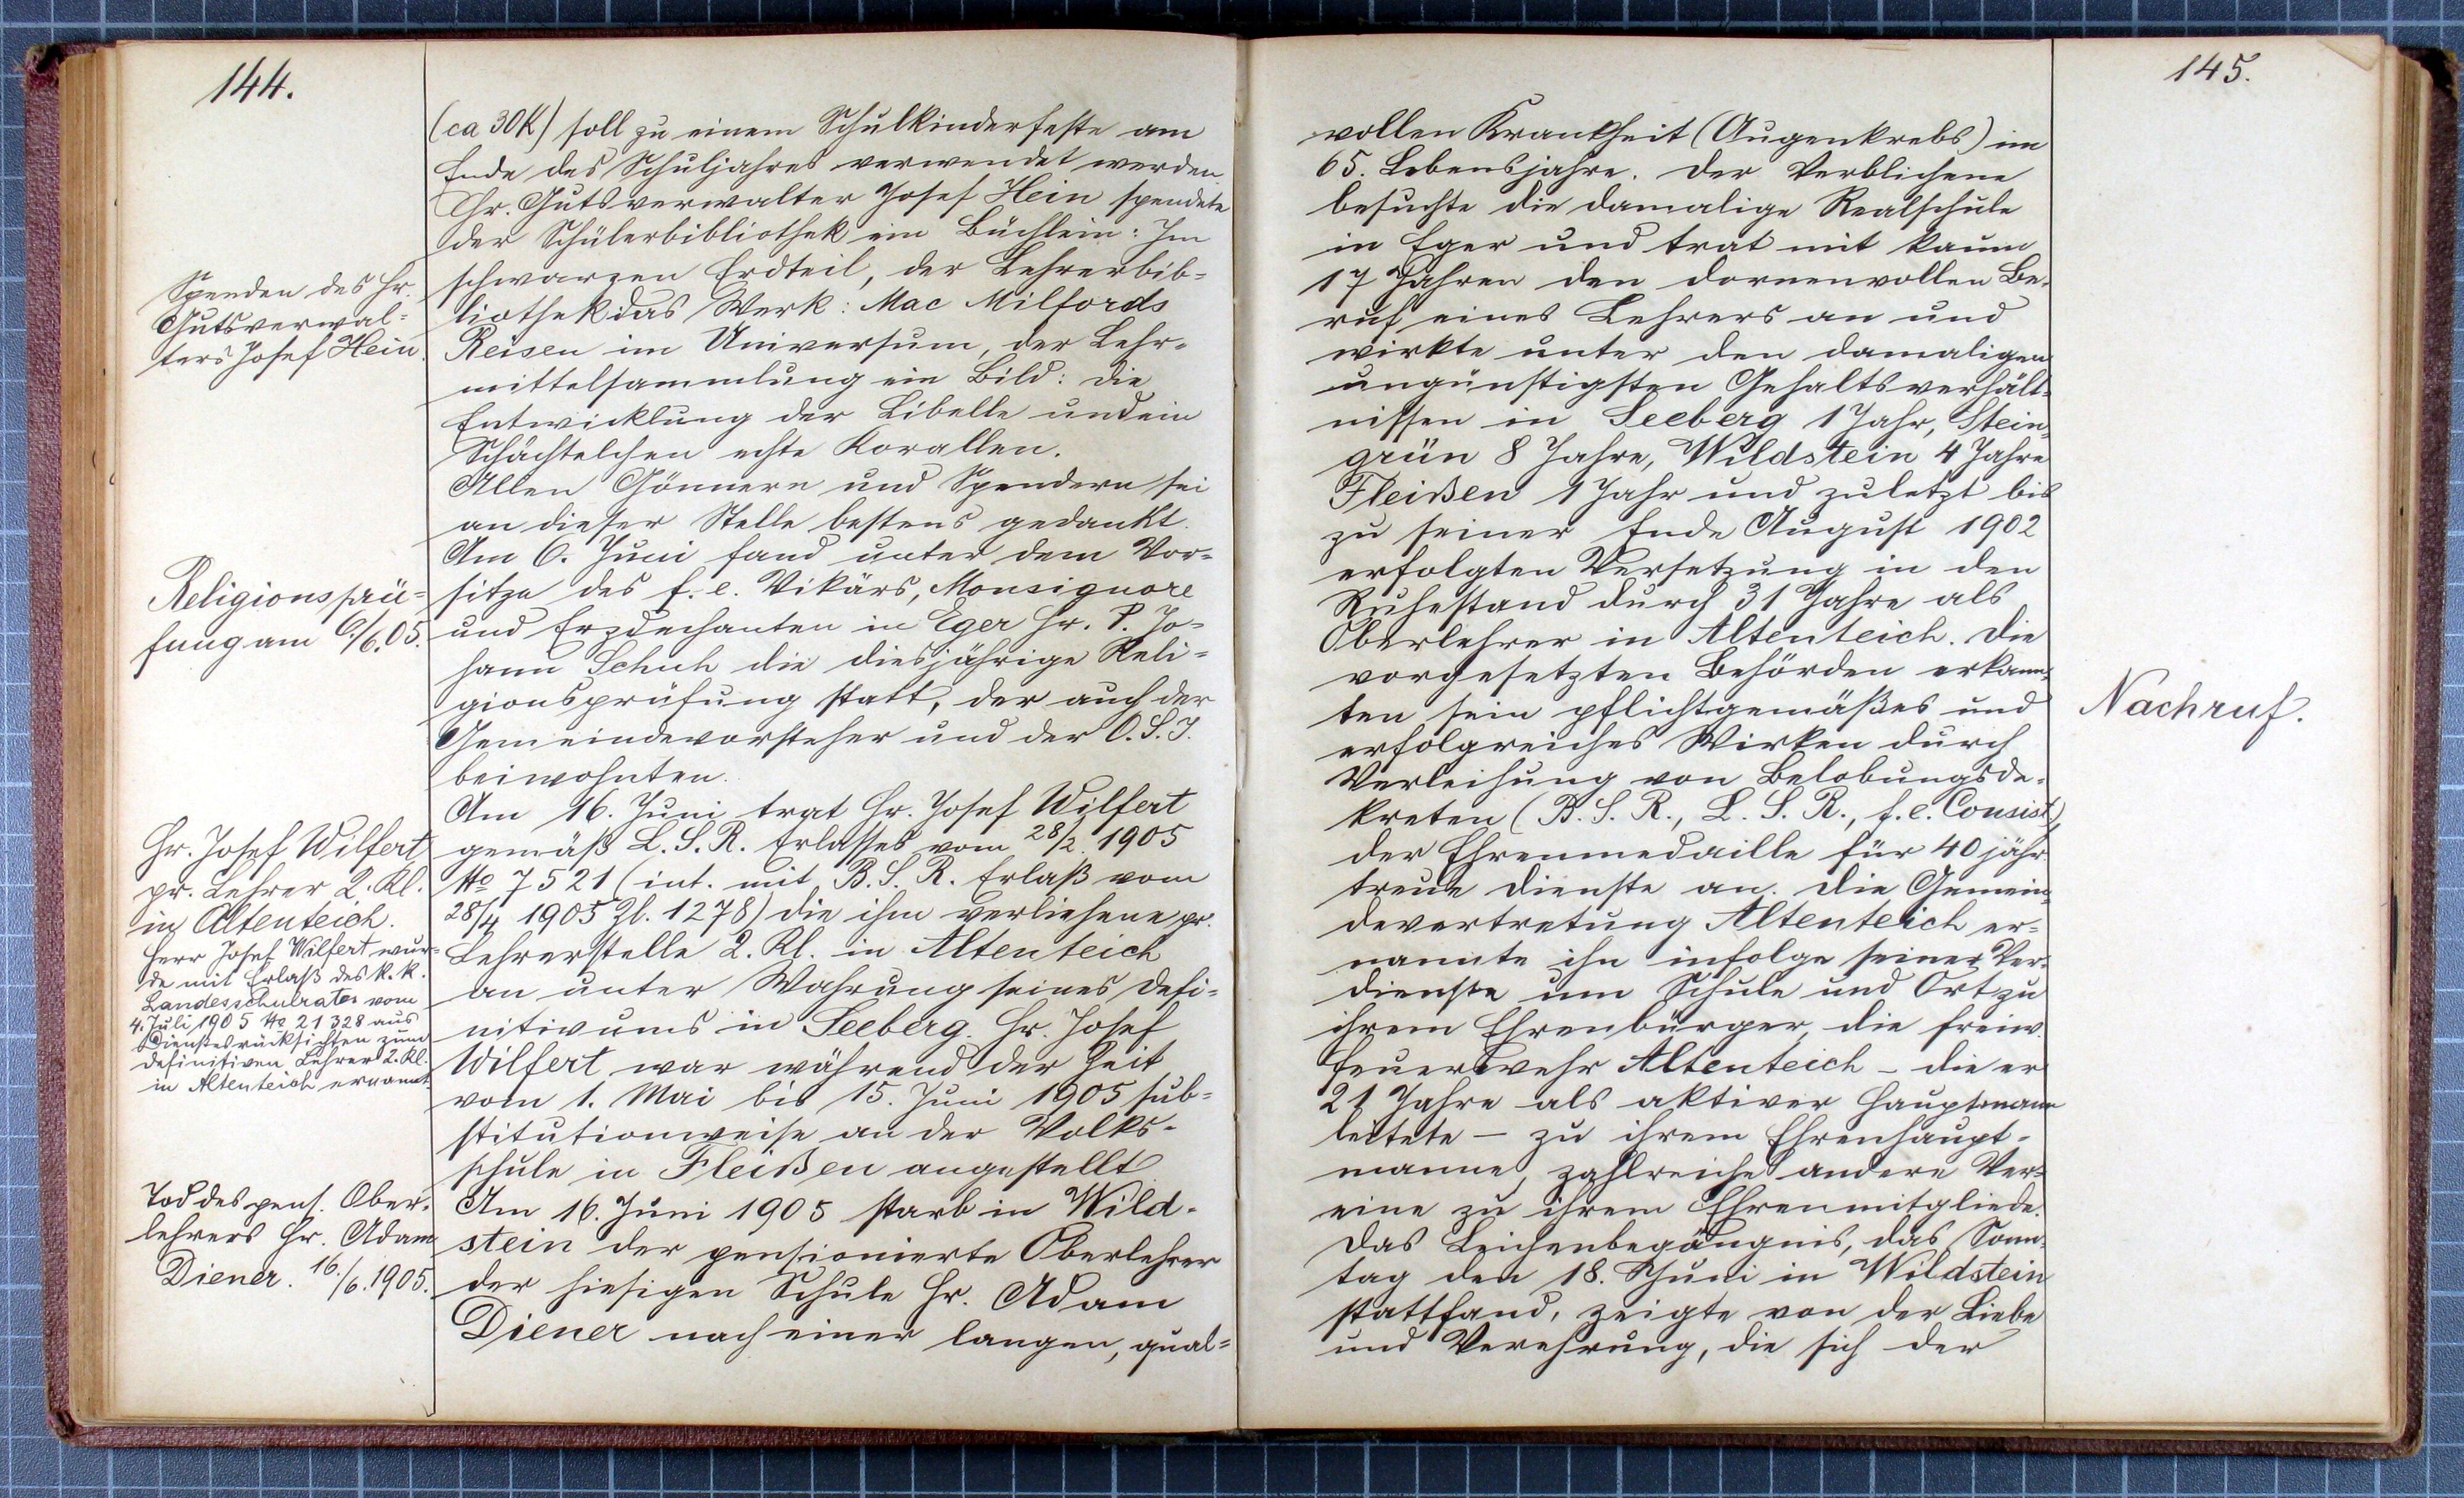 144.
(ca 30K) soll zu einem Schulkinderfeste am
Ende des Schuljahres verwendet werden.
Hr. Gutsverwalter Josef Hein spendete
der Schülerbibliothek ein Büchlein: Im
schwarzen Erdteil, der Lehrerbib-
liothek das Werk: Mac Milfords
Reisen im Universum, der Lehr-
mittelsammlung ein Bild: die
Entwicklung der Libelle und ein
Schächtelchen echte Korallen.
Allen Gönnern und Spendern sei
an dieser Stelle bestens gedankt.
Am 6. Juni fand unter dem Vor-
sitze des f. e. Vikärs, Monsignore
und Erzdechanten in Eger Hr. P. Jo-
hann Schuh die diesjährige Reli-
gionsprüfung statt, der auch der
Gemeindevorsteher und der O. S. I.
beiwohnten.
Am 16. Juni trat Hr. Josef Wilfert
gemäß L. S. R. Erlasses vom 28/2. 1905
No 7521 (int. mit B. S. R. Erlaß vom
28/4 1905 Zl. 1278) die ihm verliehene pr.
Lehrerstelle 2. Kl. in Altenteich
an unter Wahrung seines Defi-
nitivums in Seeberg. Hr. Josef
Wilfert war während der Zeit
vom 1. Mai bis 15. Juni 1905 sub-
stitutionweise an der Volks-
schule in Fleißen angestellt.
Am 16. Juni 1905 starb in Wild-
stein der pensionierte Oberlehrer
der hiesigen Schule Hr. Adam
Diener nach einer langen, qual-
Spenden des Hr.
Gutsverwal-
ters Josef Hein.
Religionsprü-
fung am 6./6. 05.
Hr. Josef Wilfert
pr. Lehrer 2. Kl.
in Altenteich.
Herr Josef Wilfert wur-
de mit Erlaß des k. k.
Landesschulrates vom
4. Juli 1905 No 21328 aus
Dienstesrücksichten zum
definitiven Lehrer 2. Kl.
in Altenteich ernannt
Tod des pens. Ober-
lehrers Hr. Adam
Diener. 16./6. 1905.
145.
vollen Krankheit (Augenkrebs) im
65. Lebensjahre. Der Verblichene
besuchte die damalige Realschule
in Eger und trat mit kaum
17 Jahren den dornenvollen Be-
ruf eines Lehrers an und
wirkte unter den damaligen
ungünstigsten Gehaltsverhält-
nissen in Seeberg 1 Jahr, Stein-
grün 8 Jahre, Wildstein 4 Jahre
Fleißen 1 Jahr und zuletzt bis
zu seiner Ende August 1902
erfolgten Versetzung in den
Ruhestand durch 31 Jahre als
Oberlehrer in Altenteich. Die
vorgesetzten Behörden erkann-
ten sein pflichtgemäßes und
erfolgreiches Wirken durch
Verleihung von Belobungsde-
kreten (B. S. R., L. S. R., f. e. Consist.)
der Ehrenmedaille für 40 jähr.
treue Dienste an. Die Gemein-
devertretung Altenteich er-
nannte ihn infolge seiner Ver-
dienste um Schule und Ort zu
ihrem Ehrenbürger, die freiw.
Feuerwehr Altenteich - die er
21 Jahre als aktiver Hauptmann
leitete - zu ihrem Ehrenhaupt-
manne, zahlreiche andere Ver-
eine zu ihrem Ehrenmitgliede.
Das Leichenbegängnis, das Sonn-
tag den 18. Juni in Wildstein
stattfand, zeigte von der Liebe
und Verehrung, die sich der
Nachruf.